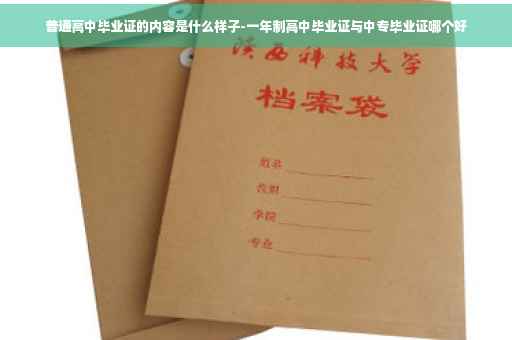 普通高中毕业证的内容是什么样子-一年制高中毕业证与中专毕业证哪个好
陕西科技大学
档案袋
姓名
学院
专业